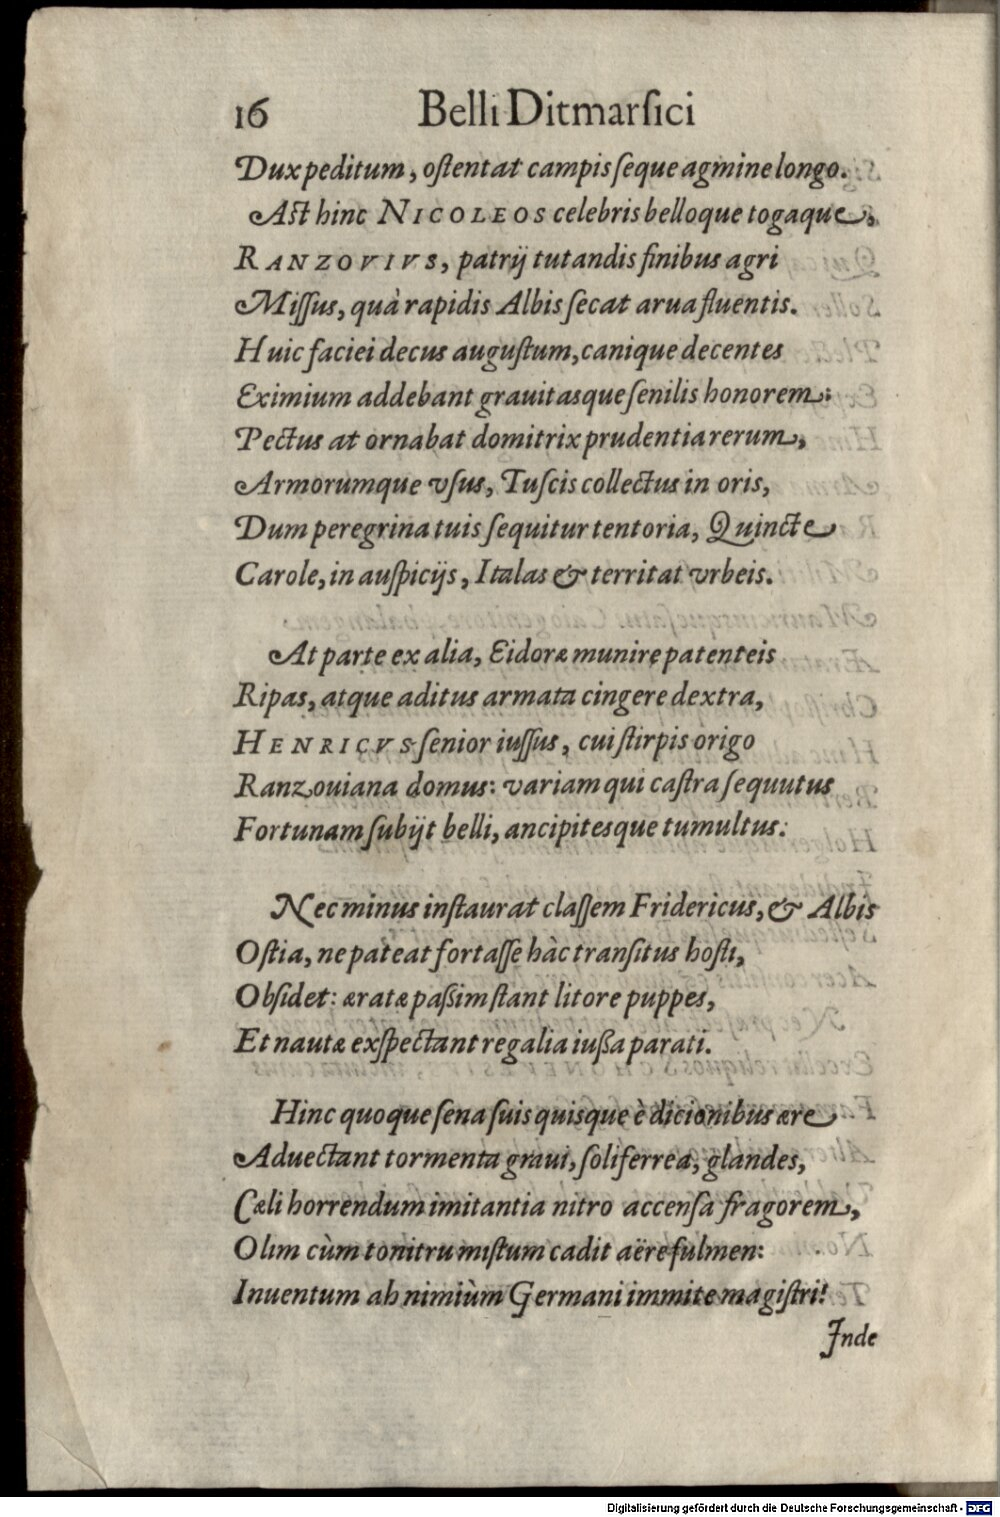 16 Belli Ditmarſici
Dux peditum, oſtentat campis ſeque agmine longo.
Aſt hinc NICOLEOS celebris belloque togaque,
RANZOVIVS, patrij tutandis finibus agri
Miſſus, quà rapidis Albis ſecat arua fluentis.
Huic faciei decus auguſtum, canique decentes
Eximium addebant grauitasque ſenilis honorem:
Pectus at ornabat domitrix prudentia rerum,
Armorumque vſus, Tuſcis collectus in oris,
Dum peregrina tuis ſequitur tentoria, Quincte
Carole, in auſpicijs, Italas & territat vrbeis.
At parte ex alia, Eidoræ munire patenteis
Ripas, atque aditus armata cingere dextra,
HENRICVS ſenior iuſſus, cui ſtirpis origo
Ranzouiana domus: variam qui caſtra ſequutus
Fortunam ſubijt belli, ancipitesque tumultus.
Nec minus inſtaurat claſſem Fridericus, & Albis
Oſtia, ne pateat fortaſſe hàc tranſitus hoſti,
Obſidet: æratæ paßim ſtant litore puppes,
Et nautæ exſpectant regalia iußa parati.
Hinc quoque ſena ſuis quisque è dicionibus ære
Aduectant tormenta graui, ſoliferrea, glandes,
Cæli horrendum imitantia nitro accenſa fragorem,
Olim cùm tonitru miſtum cadit aëre fulmen:
Inuentum ah nimiùm Germani immite magiſtri!
Inde
Digitalisierung gefördert durch die Deutsche Forschungsgemeinschaft - DFG